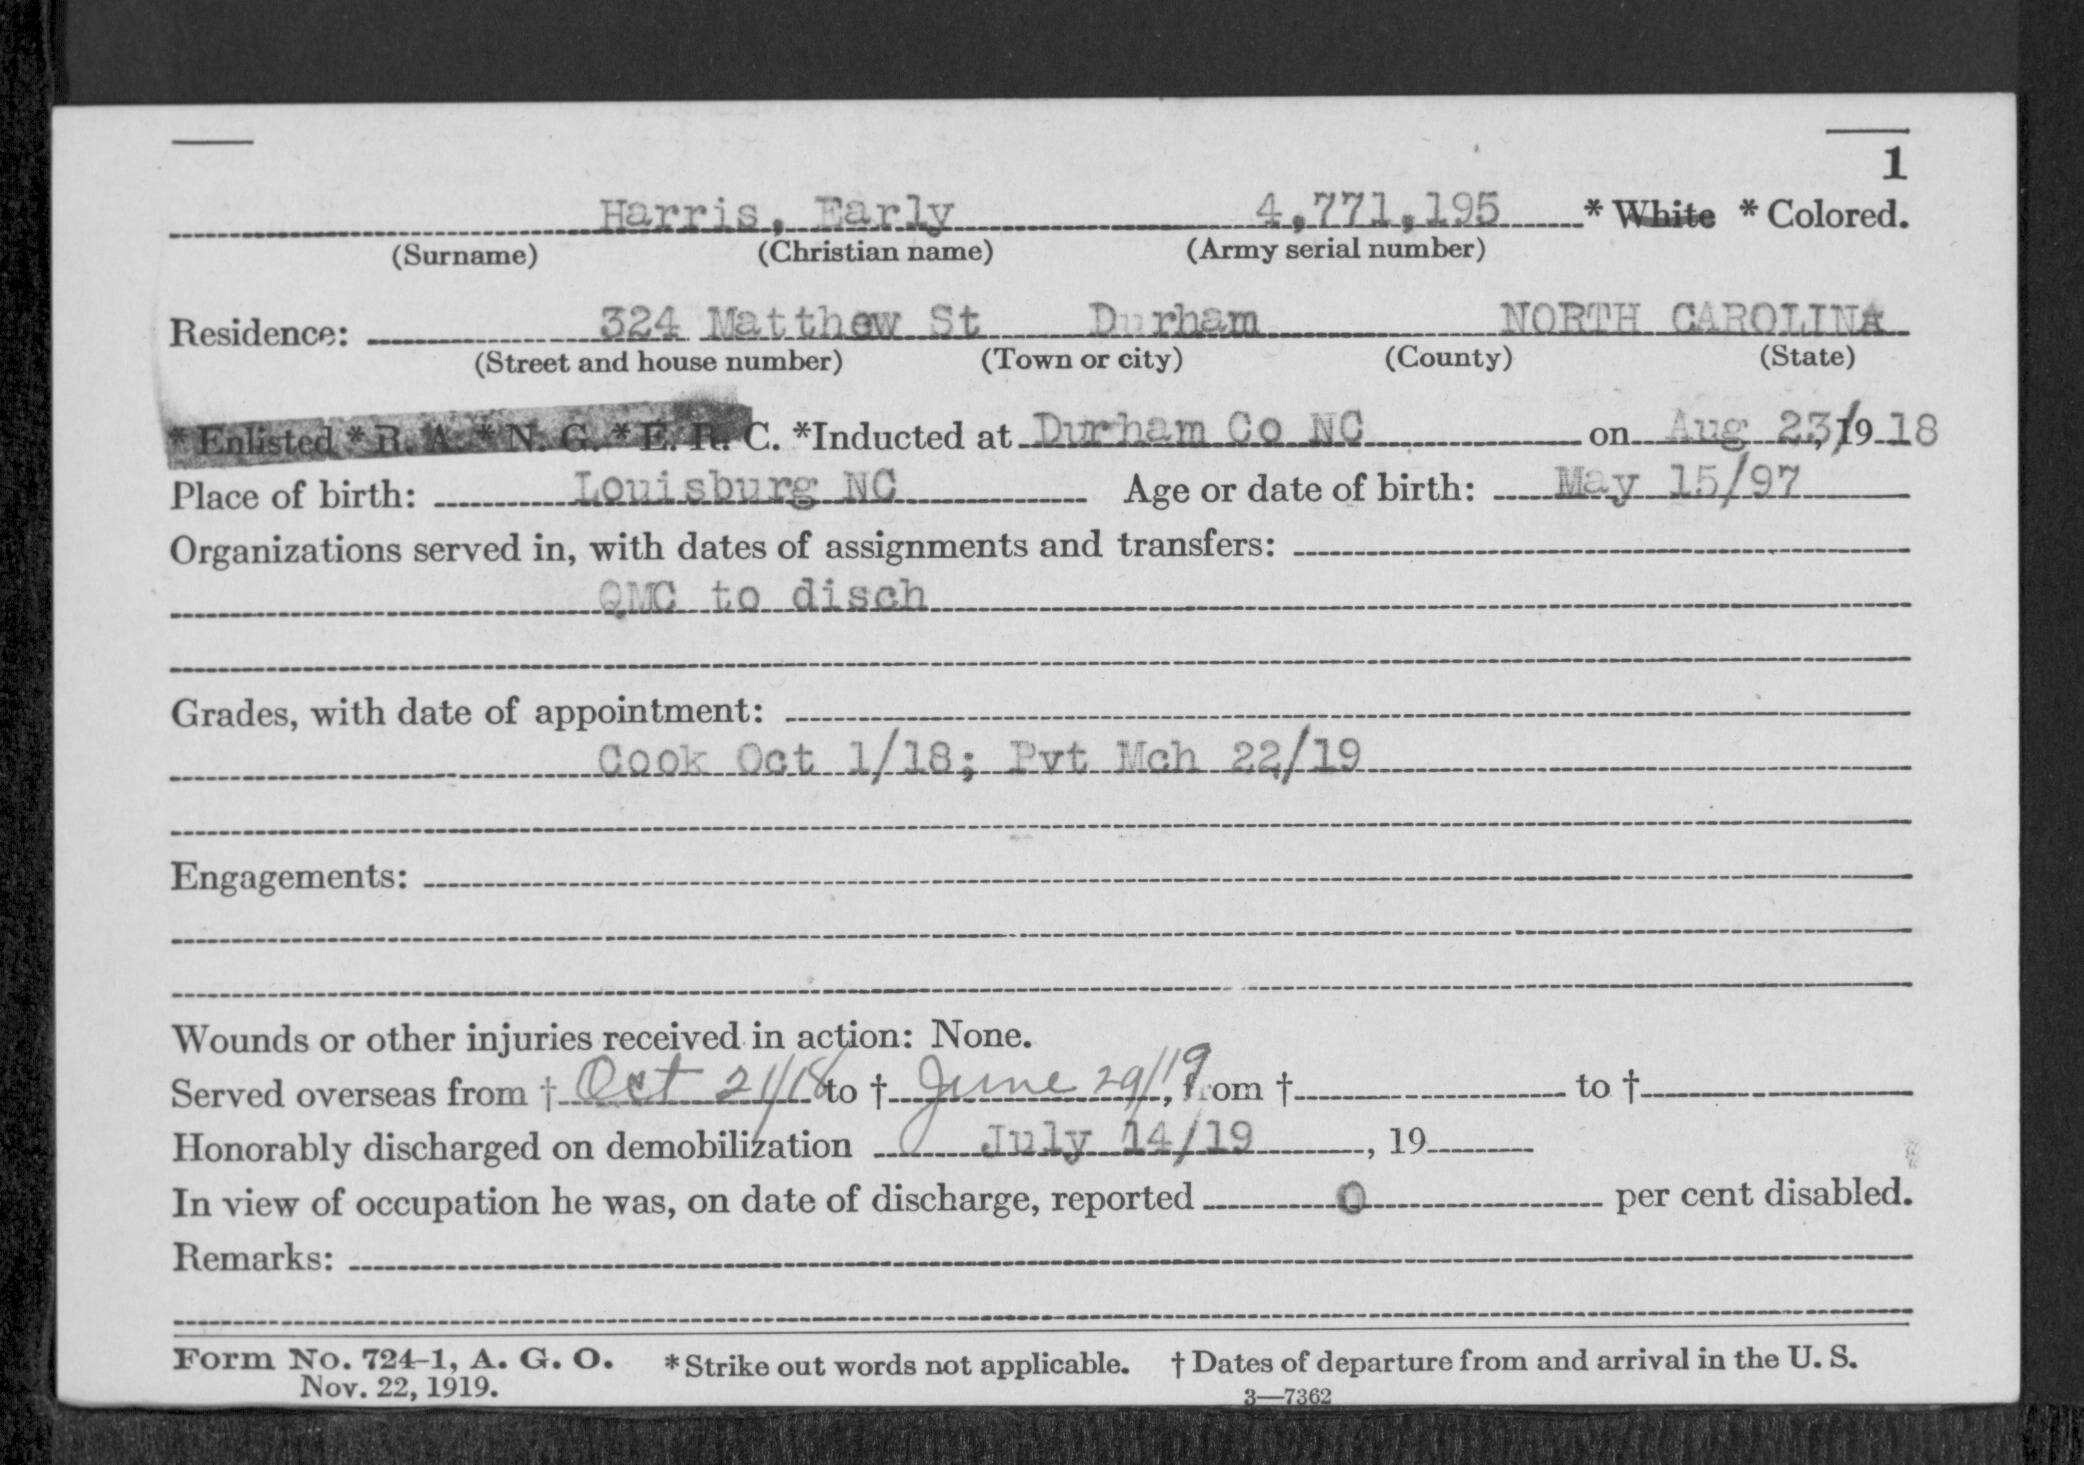 1
Harris, Early 4,771,195 * White * Colored.
(Surname) (Christian name) (Army serial number)
Residence: 324 Matthew St Durham NORTH CAROLINA
(Street and house number) (Town or city) (County) (State)
* Enlisted * R. A. * N. G. * E. R. C. *Inducted at Durham Co NC on Aug 23/, 19 18
Place of birth: Louisburg NC Age or date of birth: May 15/97
Organizations served in, with dates of assignments and transfers:
QMC to disch
Grades, with date of appointment:
Cook Oct 1/18; Pvt Mch 22/19
Engagements:
Wounds or other injuries received in action: None.
Served overseas from † Oct 21/18 to † June 29/19, from † to †
Honorably discharged on demobilization July 14/19, 19
In view of occupation he was, on date of discharge, reported 0 per cent disabled.
Remarks:
Form No. 724-1, A. G. O. * Strike out words not applicable. † Dates of departure from and arrival in the U. S.
Nov. 22, 1919. 3—7362